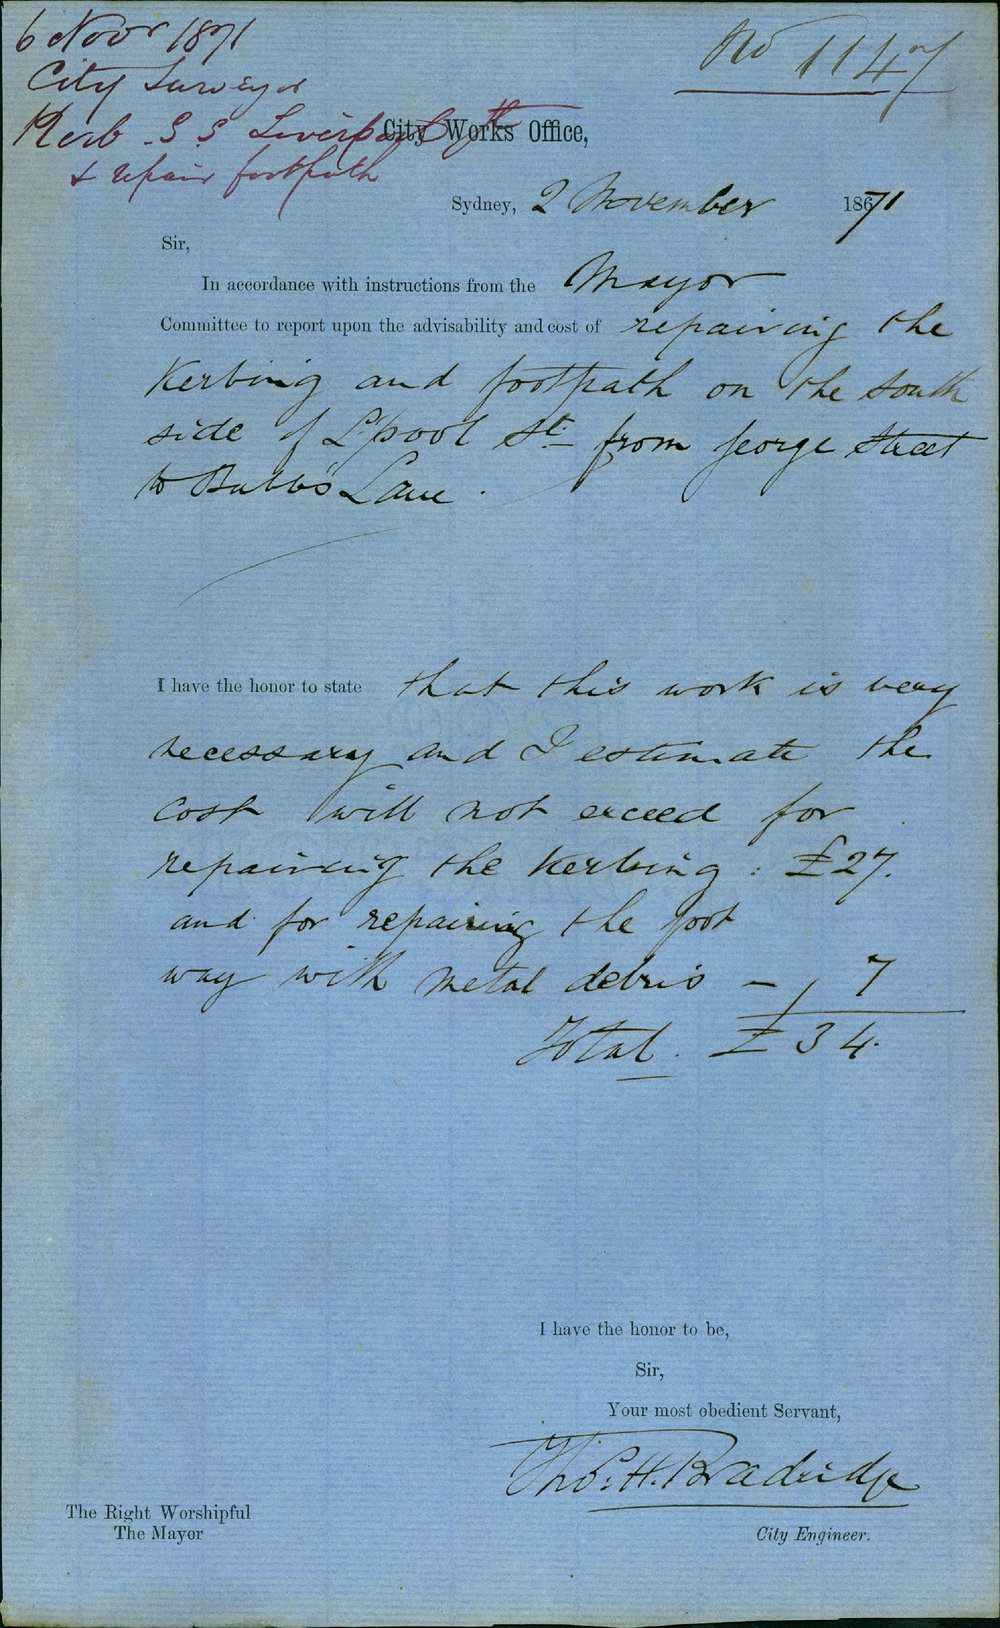 6 Novr 1871
No 1147
City Surveyor
Kerb S S Liverpool St
City Works Office,
& repair footpath
Sydney, 2 November 1871
Sir,
In accordance with instructions from the Mayor
Committee to report upon the advisability and cost of repairing the
Kerbing and footpath on the South
side of L'pool St. from George Street
to Bubb's Lane.
I have the honor to state that this work is very
necessary and I estimate the
cost will not exceed for
repairing the Kerbing : £27.
and for repairing the foot
way with metal debris - , 7
Total. £34.
I have the honor to be,
Sir,
Your most obedient Servant,
Thos. H. Bradridge
The Right Worshipful
The Mayor
City Engineer.